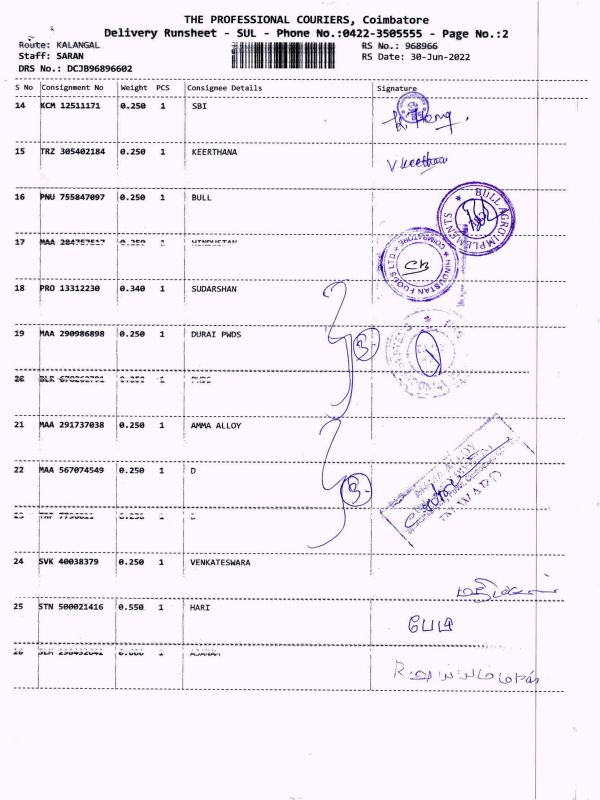 THE PROFESSIONAL COURIERS, Coimbatore
Delivery Runsheet - SUL - Phone No.:0422-3505555 - Page No.:2
Route: KALANGAL RS No.: 968966
Staff: SARAN RS Date: 30-Jun-2022
DRS No.: DCJB96896602
S No Consignment No Weight PCS Consignee Details Signature
14 KCM 12511171 0.250 1 SBI
15 TRZ 305402184 0.250 1 KEERTHANA
V Keerthana
16 PNU 755847097 0.250 1 BULL
BULL AGRO IMPLEMENTS
17 MAA 0.250 1 HINDUSTAN
HINDUSTAN FOODS LTD COIMBATORE
18 PRO 13312230 0.340 1 SUDARSHAN
19 MAA 290986898 0.250 1 DURAI PWDS
3
20
21 MAA 291737038 0.250 1 AMMA ALLOY
22 MAA 567074549 0.250 1 D
3
ALLOY
INWARD
24 SVK 40038379 0.250 1 VENKATESWARA
25 STN 500021416 0.550 1 HARI